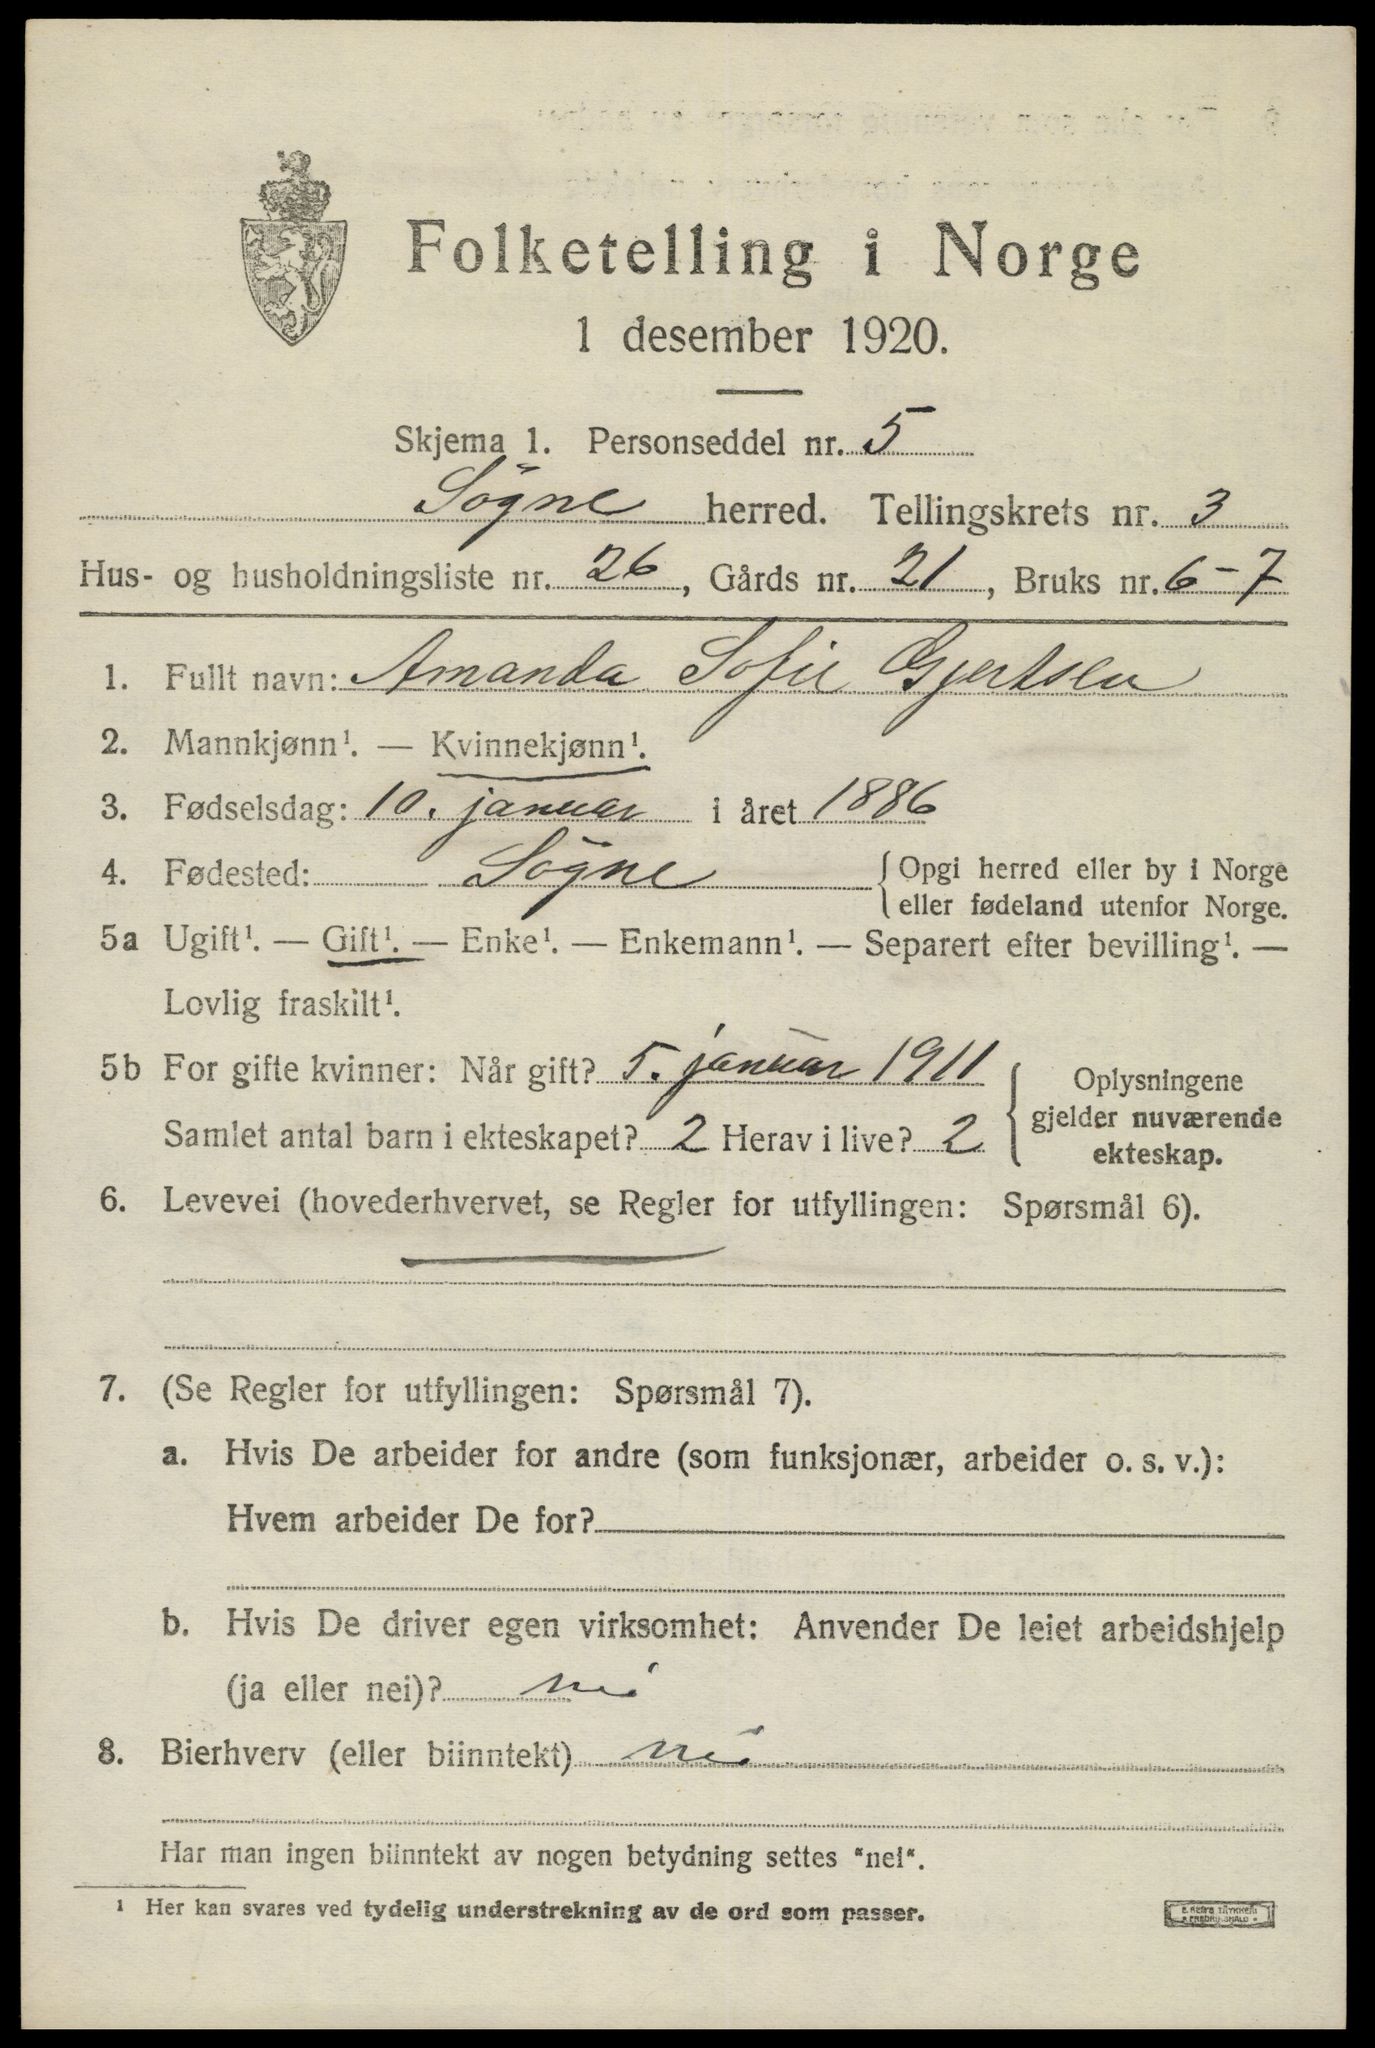 Folketelling i Norge
1 desember 1920.
Skjema 1. Personseddel nr. 5
Søgne herred. Tellingskrets nr. 3
Hus- og husholdningsliste nr. 26, Gårds nr. 21, Bruks nr. 6-7
1. Fullt navn: Amanda Sofie Gjertsen
2. Mannkjønn¹. — Kvinnekjønn¹.
3. Fødselsdag: 10. januar i året 1886
4. Fødested: Søgne { Opgi herred eller by i Norge
eller fødeland utenfor Norge.
5a Ugift¹. — Gift¹. — Enke¹. — Enkemann¹. — Separert efter bevilling¹. —
Lovlig fraskilt¹.
5b For gifte kvinner: Når gift? 5. januar 1911
Samlet antal barn i ekteskapet? 2 Herav i live? 2
{ Oplysningene
gjelder nuværende
ekteskap.
6. Levevei (hovederhvervet, se Regler for utfyllingen: Spørsmål 6).
7. (Se Regler for utfyllingen: Spørsmål 7).
a. Hvis De arbeider for andre (som funksjonær, arbeider o. s. v.):
Hvem arbeider De for?
b. Hvis De driver egen virksomhet: Anvender De leiet arbeidshjelp
(ja eller nei)? nei
8. Bierhverv (eller biinntekt) nei
Har man ingen biinntekt av nogen betydning settes "nei".
¹ Her kan svares ved tydelig understrekning av de ord som passer.